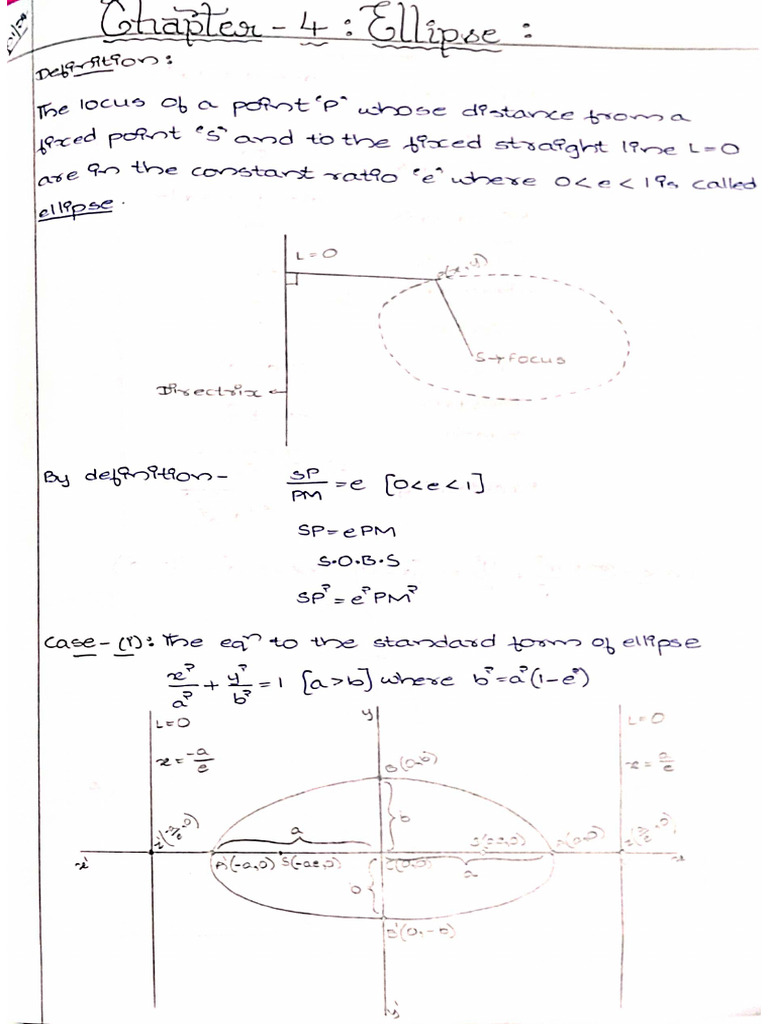 Chapter - 4 : Ellipse :
Definition:
The locus of a point 'P' whose distance from a
fixed point 'S' and to the fixed straight line L=0
are in the constant ratio 'e' where 0<e<1 is called
ellipse.
L=0
P(x,y)
S→Focus
Directrix ←
By definition - SP/PM = e [0<e<1]
SP=ePM
S.O.B.S
SP²=e²PM²
Case-(i): The eqⁿ to the standard form of ellipse
x²/a² + y²/b² = 1 [a>b] where b²=a²(1-e²)
L=0
y
L=0
x = -a/e
B(0,b)
x = a/e
b
Z'(-a/e,0)
a
S(ae,0)
A(a,0)
Z(a/e,0)
x'
A'(-a,0)
S'(-ae,0)
C(0,0)
a
x
b
B'(0,-b)
y'